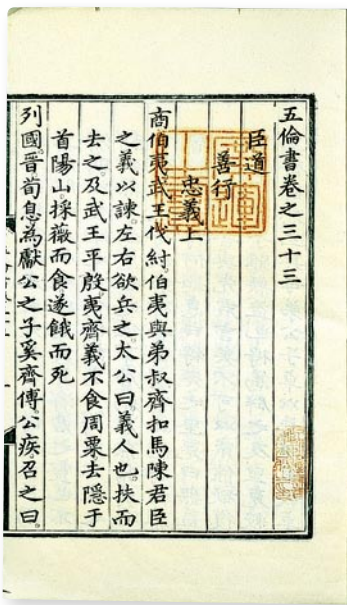 五倫書卷之三十三
臣道
善行
忠義上
商伯夷武王伐紂。伯夷與弟叔齊扣馬陳君臣
之義以諫左右欲兵之。太公曰。義人也。扶而
去之。及武王平殷。夷齊義不食周粟去隱于
首陽山採薇而食遂餓而死
列國。晉荀息為獻公之子奚齊傅。公疾。召之曰。